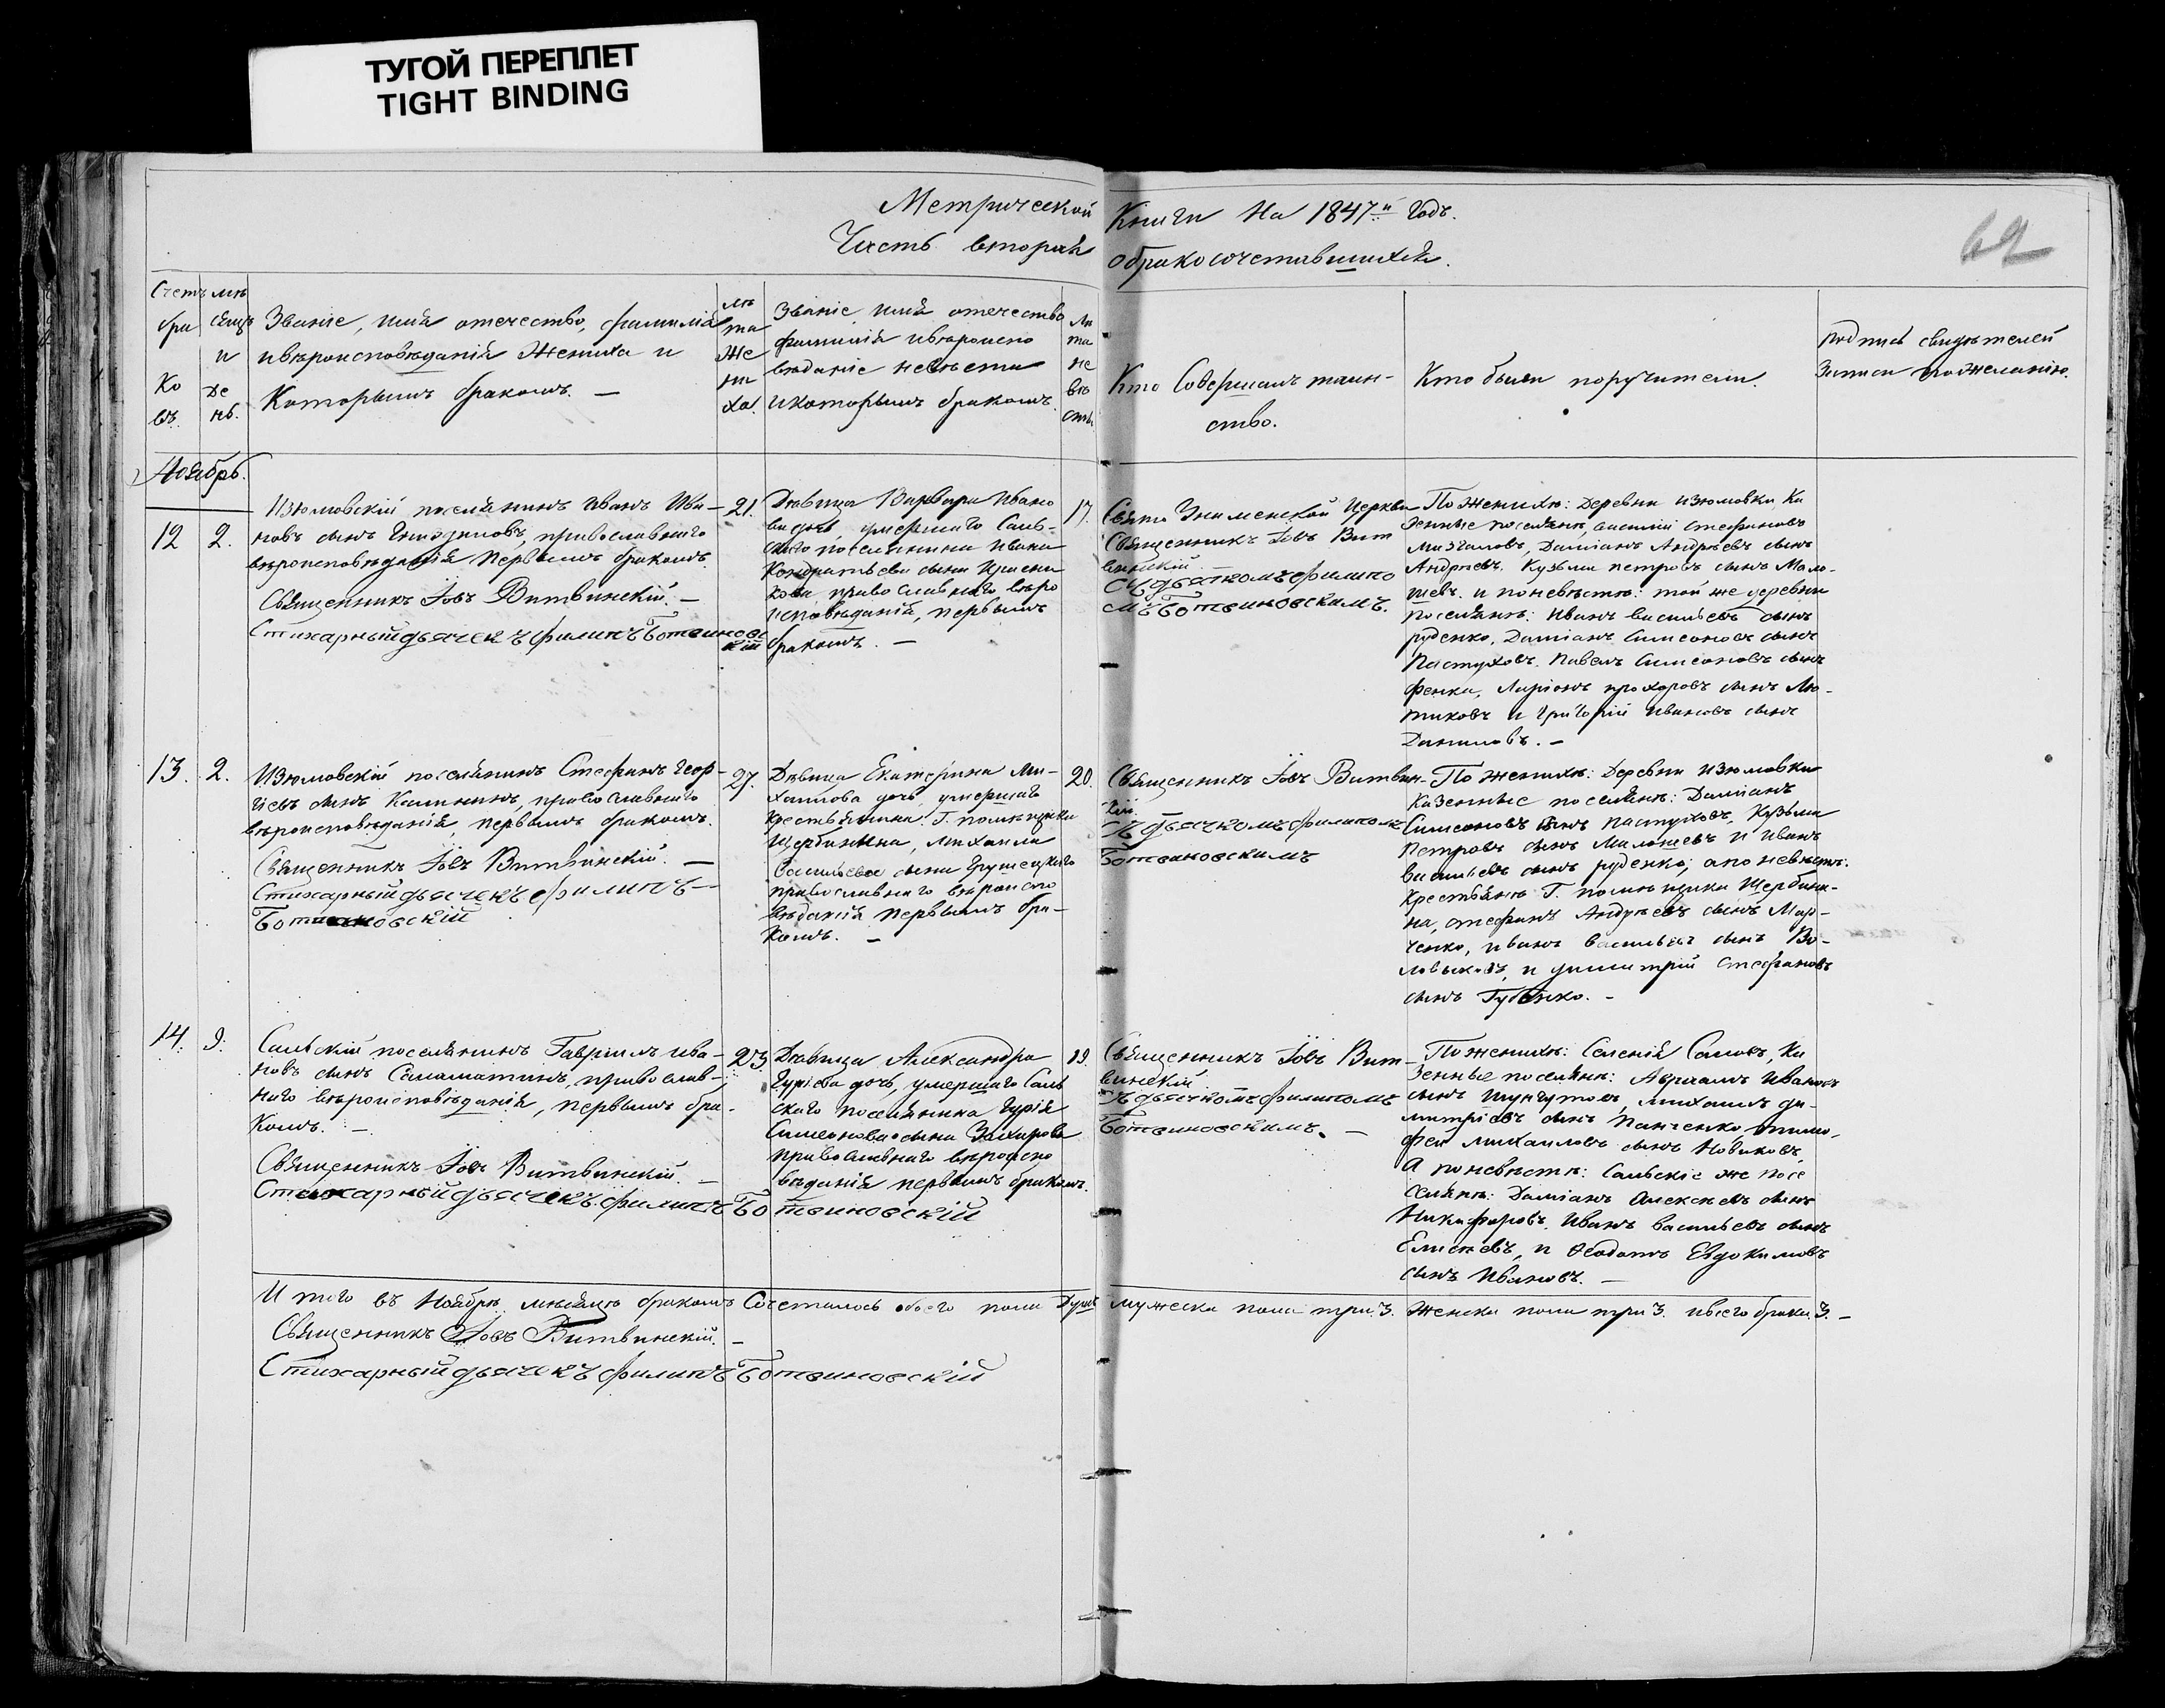 ТУГОЙ ПЕРЕПЛЕТ
TIGHT BINDING
Метрической Книги На 1847й годъ.
Часть вторая о бракосочетавшихся.
62
Счетъ
бра
ко
въ.
мѣ
сяцъ
и
де
нь.
Званіе, имя отечество, фамилія
и вѣроисповѣданія Жениха и
Которымъ бракомъ. —
лѣ
та
же
ни
ха.
Званіе имя отечество
фамилія и вѣроиспо
вѣданіе невѣсты
и которымъ бракомъ.
лѣ
та
не
вѣ
сты
Кто Совершалъ таин-
ство.
Кто были поручители.
подпись свидѣтелей
Записи по желанію.
Ноябрь.
12
2.
Изюмовскій поселянинъ Иванъ Ива-
новъ сынъ православнаго
вѣроисповѣданія первымъ бракомъ.
Священникъ Іовъ Витвинскій. —
Стихарный дьячекъ Филипъ Ботвиновс
кій
21.
Дѣвица Варвара Ивано
ва дочь, умершаго Салъ-
скаго поселянина Ивана
Кондратьева сына
православнаго вѣро
исповѣданія, первымъ
бракомъ. —
17.
Свято Знаменской Церкви
Священникъ Іовъ Вит
винскій
Съ дьячкомъ Филипо
мъ Ботвиновскимъ.
По женихѣ: Деревни Изюмовки Ка
зенные поселяне, василій стефановъ
Даміанъ Андреевъ сынъ
Андреевъ. Кузьма петровъ сынъ Мало-
шевъ. и по невѣстѣ: той же деревни
поселяне: Иванъ васильевъ сынъ
руденко, Даміанъ Симеоновъ сынъ
Пастуховъ. Павелъ Симеоновъ сынъ
фенка, Ларіонъ прохоровъ сынъ Лю-
тиковъ и Григорій Ивановъ сынъ
Даниловъ. —
13.
2.
Изюмовскій поселянинъ Стефанъ Геор-
гіевъ сынъ Калининъ, православнаго
вѣроисповѣданія, первымъ бракомъ.
Священникъ Іовъ Витвинскій. —
Стихарный дьячекъ Филипъ
Ботвиновскій
27.
Дѣвица Екатерина Ми-
хаилова дочь, умершаго
крестьянина Г. помѣщика
Щербинина, Михаила
Васильева сына Грушецкаго
православнаго вѣроиспо
вѣданія первымъ бра-
комъ. —
20.
Священникъ Іовъ Витвин-
кій.
Съ дьячкомъ Филипомъ
Ботвиновскимъ
По женихѣ: Деревни Изюмовки
Казенные поселяне: Даміанъ
Симеоновъ сынъ Пастуховъ, Кузьма
Петровъ сынъ Малошевъ и Иванъ
васильевъ сынъ руденко; а по невѣстѣ:
Крестьяне Г. помѣщика Щербини-
на, стефанъ Андреевъ сынъ Мар-
ченко, иванъ васильевъ сынъ Во-
и димитрій Стефановъ
сынъ Губенко. —
14.
9.
Сальскій поселянинъ Гавріилъ Ива-
новъ сынъ Саламатинъ, православ-
наго вѣроисповѣданія, первымъ бра-
комъ. —
Священникъ Іовъ Витвинскій. —
Стихарный дьячекъ Филипъ Ботвиновскій
23.
Дѣвица Александра
Гуріева дочь, умершаго Саль
скаго поселянина Гурія
Симеонова сына Захарова
православнаго вѣроиспо
вѣданія первымъ бракомъ.
19.
Священникъ Іовъ Вит-
винскій.
Съ дьячкомъ Филипомъ
Ботвиновскимъ. —
По женихѣ: Селенія Саловъ, Ка
зенные поселяне: Авраамъ Ивановъ
сынъ Шунгутовъ, Михаилъ ди-
митріевъ сынъ Панченко тимо-
фей Михаиловъ сынъ Новиковъ,
А по невѣстѣ: Сальскіе же посе
селяне: Даміанъ Алексеевъ сынъ
Никифоровъ. Иванъ васильевъ сынъ
Елисеевъ, и Ѳеодотъ Евдокимовъ
сынъ Ивановъ. —
И того въ Ноябрѣ мѣсяцѣ бракомъ Сочеталось обоего пола Душъ мужеска пола три 3. Женска пола три 3. и всего брака 3. —
Священникъ Іовъ Витвинскій. —
Стихарный дьячекъ Филипъ Ботвиновскій